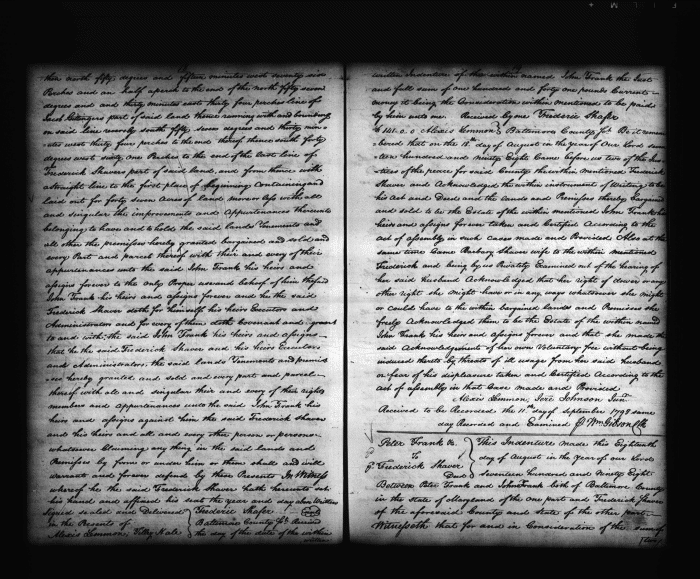 then north fifty degrees and fifteen minutes west seventy six
Perches and an half a perch to the end of the north fifty seven
degrees and and thirty minutes east thirty four perches line of
said land thence running with and bounding
on said line reversly south fifty seven degrees and thirty min-
-utes west thirty four perches to the end thereof thence south forty
degrees west sixty one Perches to the end of the East line of
Frederick Shavers part of said land, and from thence with
a straight line to the first place of Beginning Containing and
laid out for forty seven Acres of land more or less with all
and singular the improvements and Appertenances thereunto
belonging to have and to hold the said lands Tenements and
all other the premisses hereby granted bargained and sold and
every Part and parcel thereof with their and every of their
appertenances unto the said John Frank his heirs and
assigns forever to the only Proper use and behoof of him the said
John Frank his heirs and assigns forever and he the said
Frederick Shaver doth for himself his heirs Executors and
Administrators and for every of them doth Covenant and grant
to and with the said John Frank his heirs and assigns
that he the said Frederick Shaver and his heirs Executors
and Administrators, the said lands Tenements and premis-
-ses hereby granted and sold and every part and parcel
thereof with all and singular their and every of their rights
members and appertenances unto the said John Frank his
heirs and assigns against him the said Frederick Shaver
and his heirs and all and every other person or persons
whatsoever Claiming any thing in the said lands and
Premisses by from or under him or them shall and will
warrant and forever defend by these Presents In Witness
whereof he the said Frederick Shaver hath hereunto set
his hand and affixed his seal the year and day above Written
Signed sealed and Delivered Frederic Shafer
in the Presents of Baltimore County Sct. Received
Alexis Lemmon, the day of the date of the within
written Indenture of the within named John Frank the Just
and full sum of one hundred and forty one pounds Current
money it being the Consideration within mentioned to be paid
by him unto me Received by me Frederic Shafer
£141.0.0 Alexis Lemmon Baltimore County Sct. Be it remem-
-bered that on the day of August in the year of our Lord seven
teen hundred and Ninety Eight Came before us two of the Jus-
-tices of the peace for said County the within mentioned Frederick
Shaver and Acknowledged the within instrument of Writing to be
his Act and Deed and the Lands and Premises thereby bargained
and sold to be the Estate of the within mentioned John Frank his
heirs and assigns forever taken and Certified According to the
Act of assembly in such cases made and Provided Also at the
same time Came Barbary Shaver wife to the within mentioned
Frederick and being by us Privately Examined out of the hearing of
her said husband Acknowledged that her right of dower or any
other right she might have or in any ways whatsoever she might
or could have to the within bargained lands and Premises she
freely Acknowledged them to be the Estate of the within named
John Frank his heirs and assigns forever and that she made the
said Acknowledgement of her own Voluntary free without being
induced thereto by threats of ill usage from her said husband
or fear of his displeasure taken and Certified According to the
Act of assembly in that Case made and Provided
Alexis Lemmon, Jere Johnson
Received to be Recorded the 11th day of September 1798 same
day Recorded and Examined Wm Gibson Clk
Peter Frank &c. This Indenture made this Eighteenth
To day of August in the year of our Lord
Frederick Shaver seventeen hundred and Ninety Eight
Deed
Between Peter Frank and John Frank both of Baltimore County
in the State of Maryland of the one part and Frederick Shaver
of the aforesaid County and State of the other part
Witnesseth that for and in Consideration of the sum of